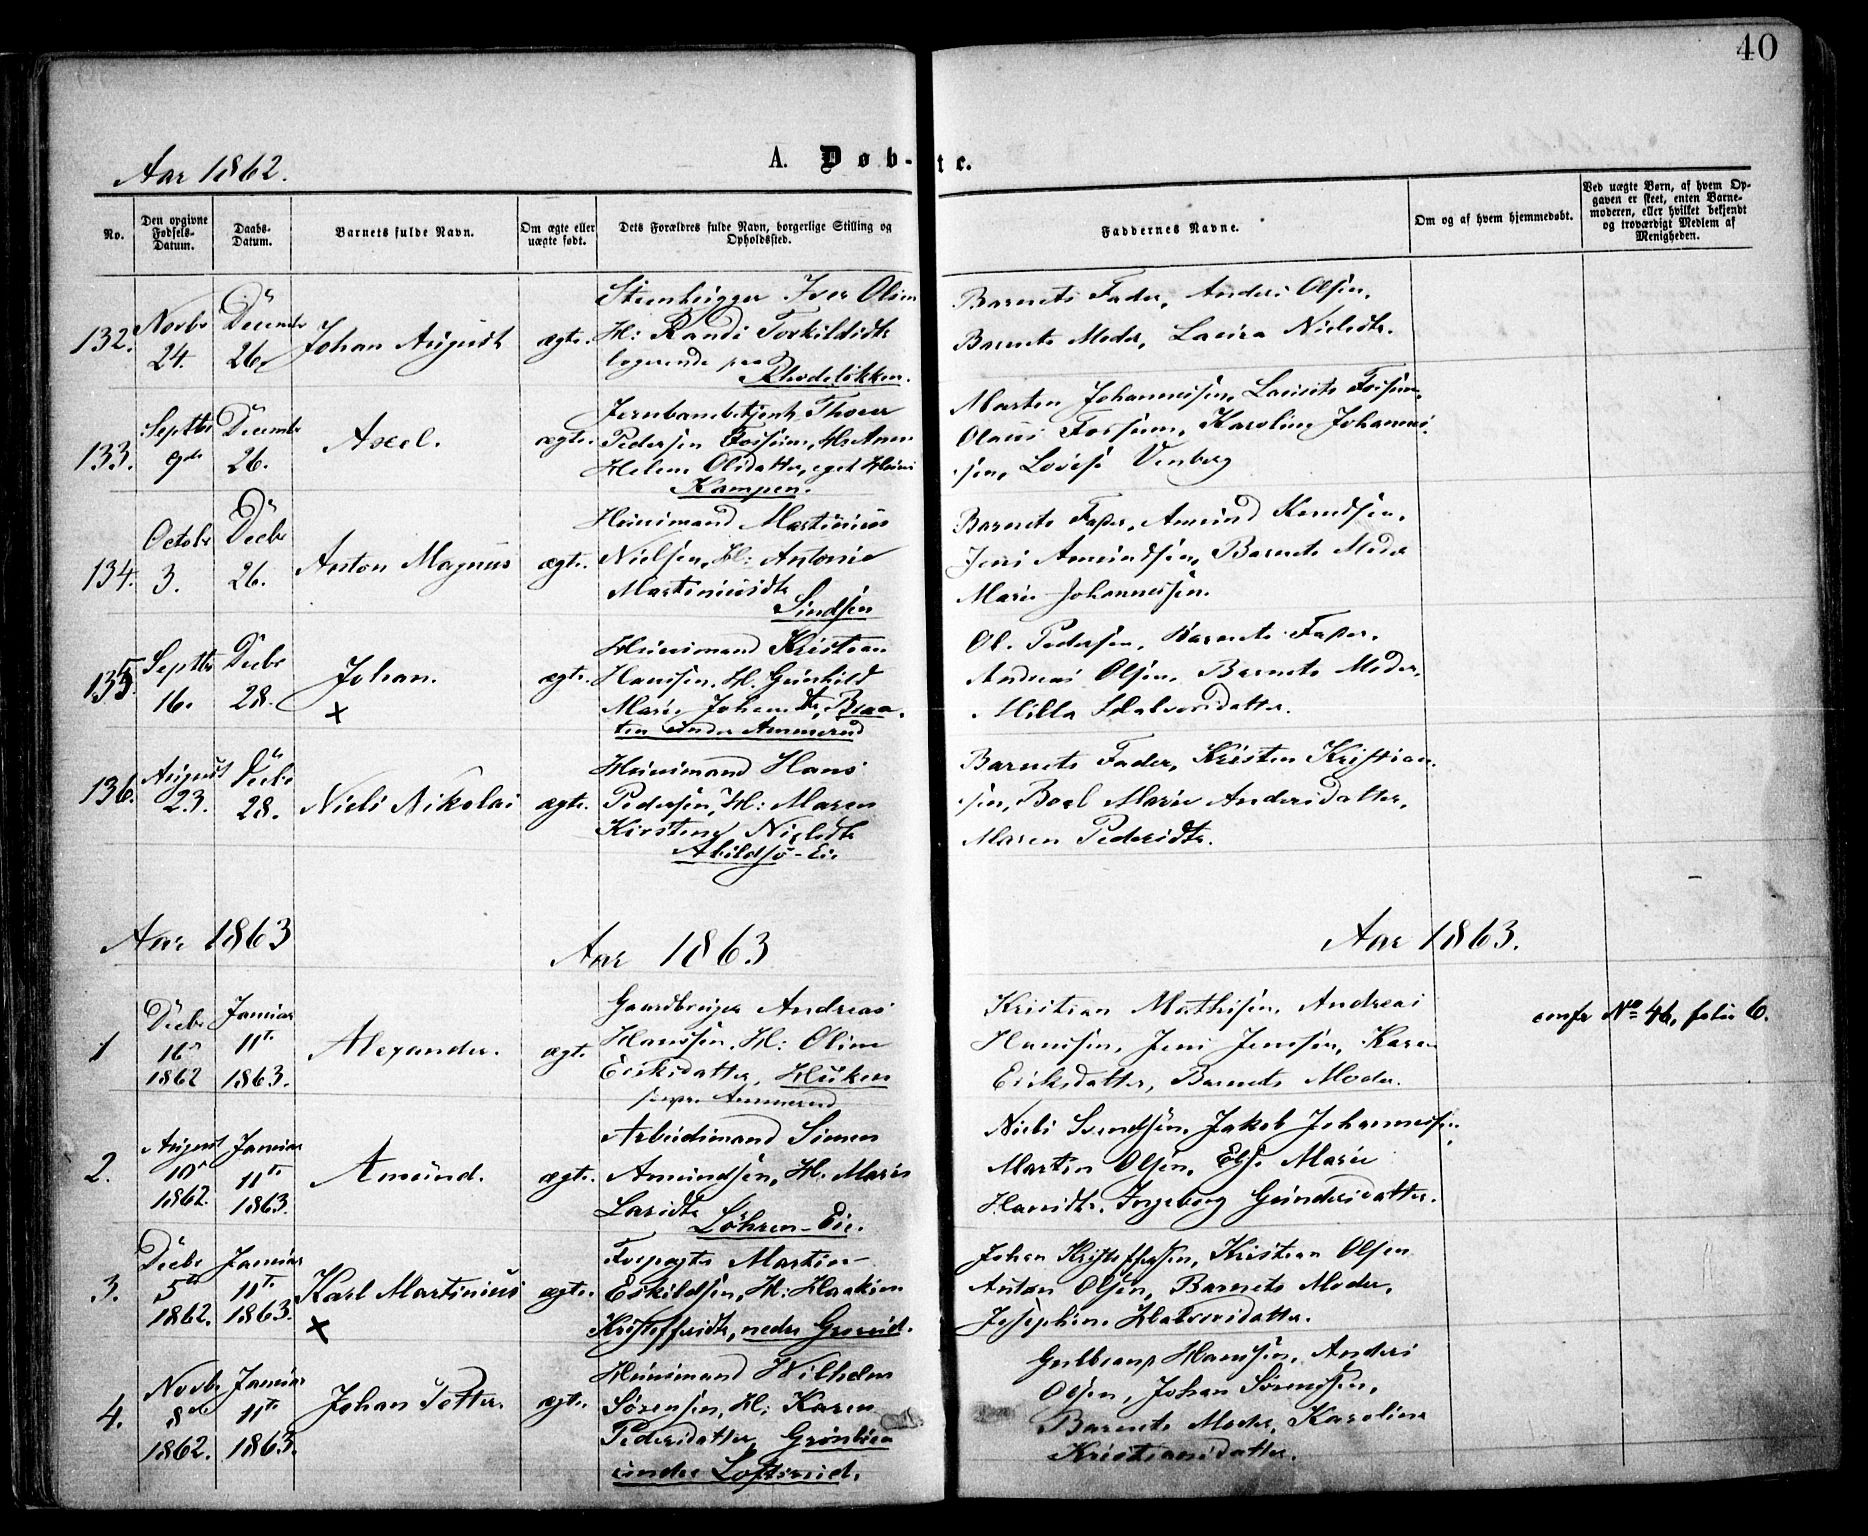 40
Aar 1862.
A. Døb-te.
No.
Den opgivne Fødsels-Datum.
Daabs-Datum.
Barnets fulde Navn.
Om ægte eller uægte født.
Dets Forældres fulde Navn, borgerlige Stilling og Opholdssted.
Faddernes Navne.
Om og af hvem hjemmedøbt.
Ved uægte Børn, af hvem Opgaven er skeet, enten Barnemoderen, eller hvilket bekjendt og troværdigt Medlem af Menigheden.
132.
Novbr 24.
Decembr 26
Johan August
ægte.
Steenhugger Iver Olsen
H: Randi Torkildsdtr
logerende paa
Rhodeløkken.
Barnets Fader, Anders Olsen,
Barnets Moder, Laura Nielsdtr.
133.
Septbr 9de
Decembr 26.
Axel.
ægte.
Jernbanebetjent Thorer
Pedersen Fossum, H: Anne
Helene Olsdatter, eget Huus
Kampen.
Marten Johannessen, Lauritz Fossum,
Olaus Fossum, Karoline Johannes-
sen, Lovise Venberg
134.
Octobr 3.
Decbr 26.
Anton Magnus
ægte.
Huusmand Martinius
Nielsen, H: Antonie
Martiniusdtr
Sindsen
Barnets Fader, Amund Knudsen,
Jens Amundsen, Barnets Moder
Marie Johannessen.
135.
Septbr 16.
Decbr 28.
Johan.
×
ægte.
Huusmand Kristian
Hanssen, H. Gunhild
Marie Johansdtr, Braa-
ten under Ammerud
Ol. Pedersen, Barnets Fader,
Andreas Olsen, Barnets Moder,
Milla Halvorsdatter.
136.
August 23.
Decbr 28.
Niels Nikolai
ægte.
Huusmand Hans
Pedersen, H: Maren
Kirstine Nielsdtr
Abildsø-Eie.
Barnets Fader, Kristen Kristian-
sen, Boel Marie Andersdatter,
Maren Pedersdtr.
Aar 1863
Aar 1863
Aar 1863.
1
Decbr 16 1862
Januar 11te 1863.
Alexander.
ægte
Gaardbruger Andreas
Hanssen, H: Oline
Eriksdatter, Huken
Ammerud
Kristian Mathisen, Andreas
Hansen, Jens Jenssen, Karen
Eriksdatter, Barnets Moder.
confr No 46, folio 6.
2.
August 10 1862.
Januar 11te 1863.
Amund.
ægte.
Arbeidsmand Simen
Amundsen, H. Maren
Larsdtr
Løhren-Eie.
Niels Svendsen, Jakob Johannessen,
Martin Olsen, Else Marie
Hansdtr, Ingeborg Gundersdatter.
3.
Decbr 5te 1862.
Januar 11te 1863.
Karl Martinius
×
ægte.
Forpagter Martin
Eskildsen, H: Haakine
Kristoffersdtr, nedre Grorud.
Johan Kristoffersen, Kristian Olsen
Anton Olsen, Barnets Moder,
Josephine Halvorsdatter.
4.
Novbr 8de 1862.
Januar 11te 1863.
Johan Petter.
ægte.
Huusmand Wilhelm
Sørensen, H: Karen
Pedersdatter Grønlien
under Loftsrud.
Gulbrand Hanssen, Anders
Olsen, Johan Sørenssen,
Barnets Moder, Karoline
Kristiansdatter.